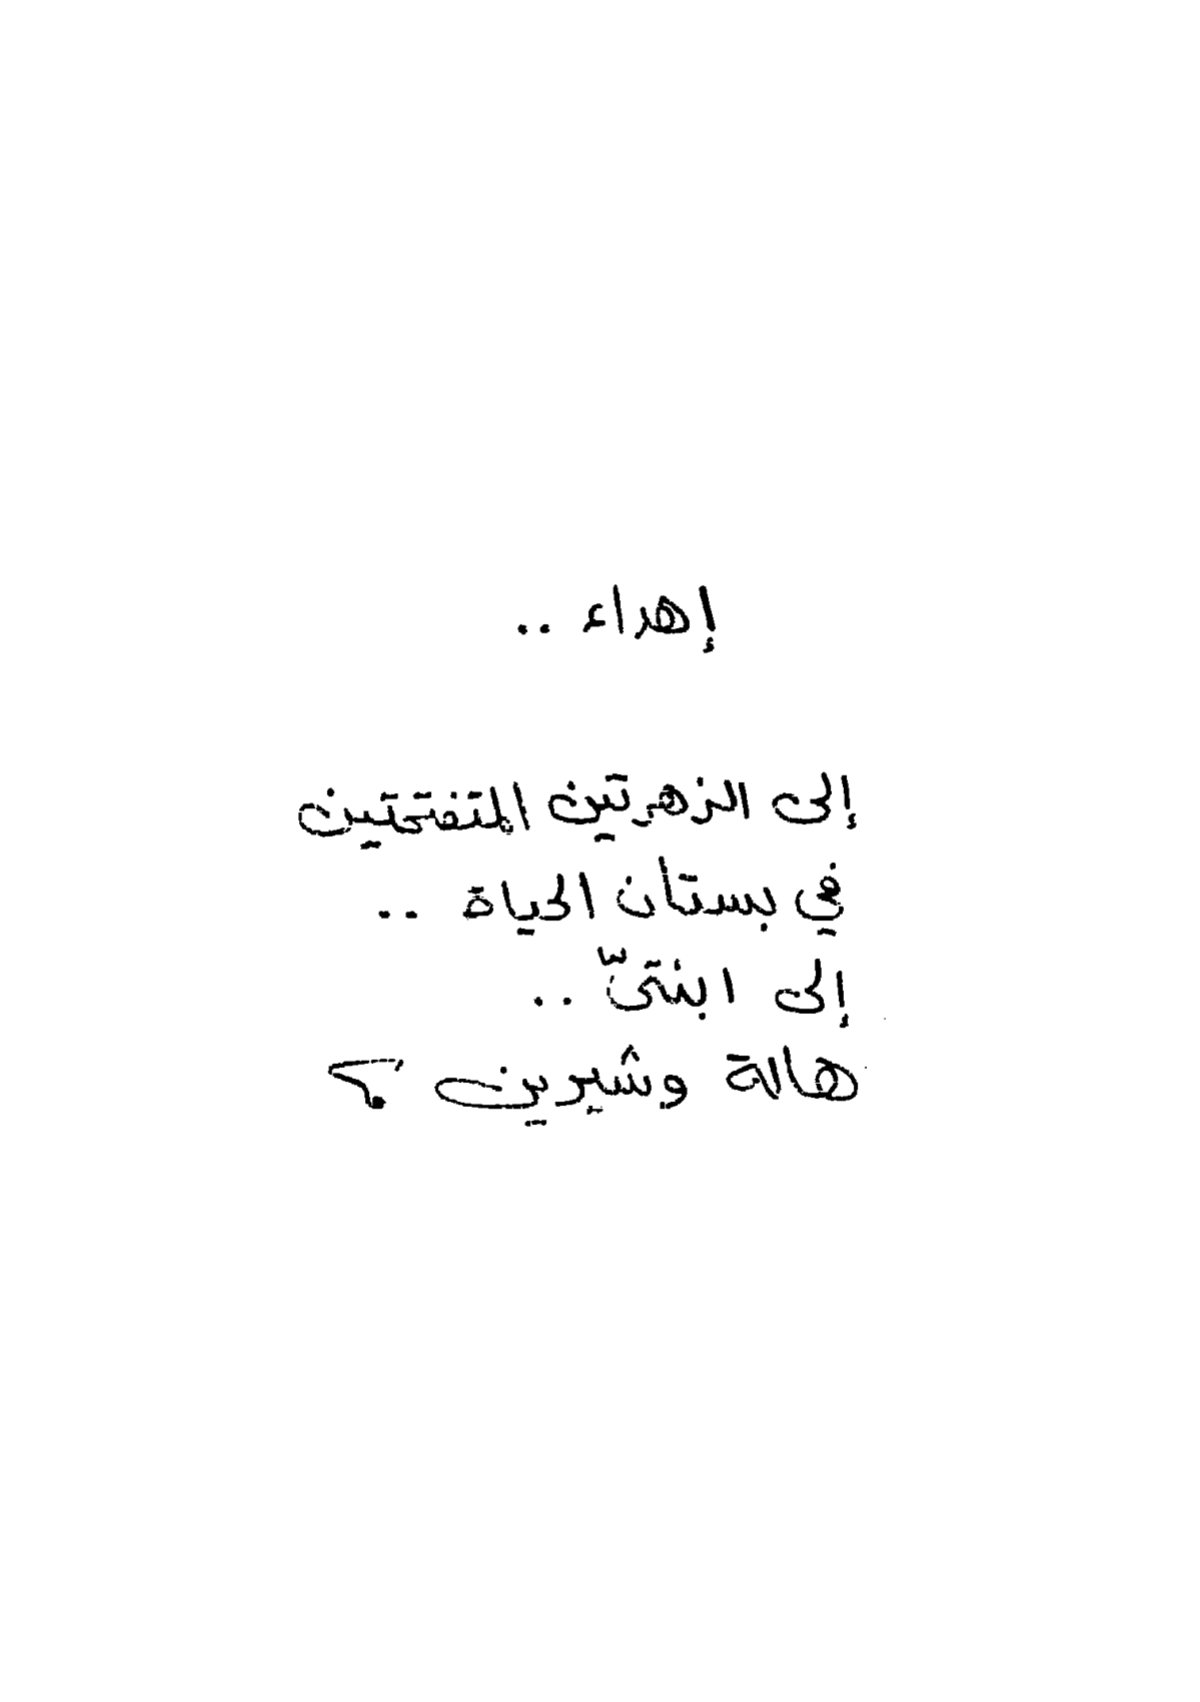 إهداء ..
إلى الزهرتين المتفتحتين
في بستان الحياة ..
إلى ابنتىّ ..
هالة وشيرين